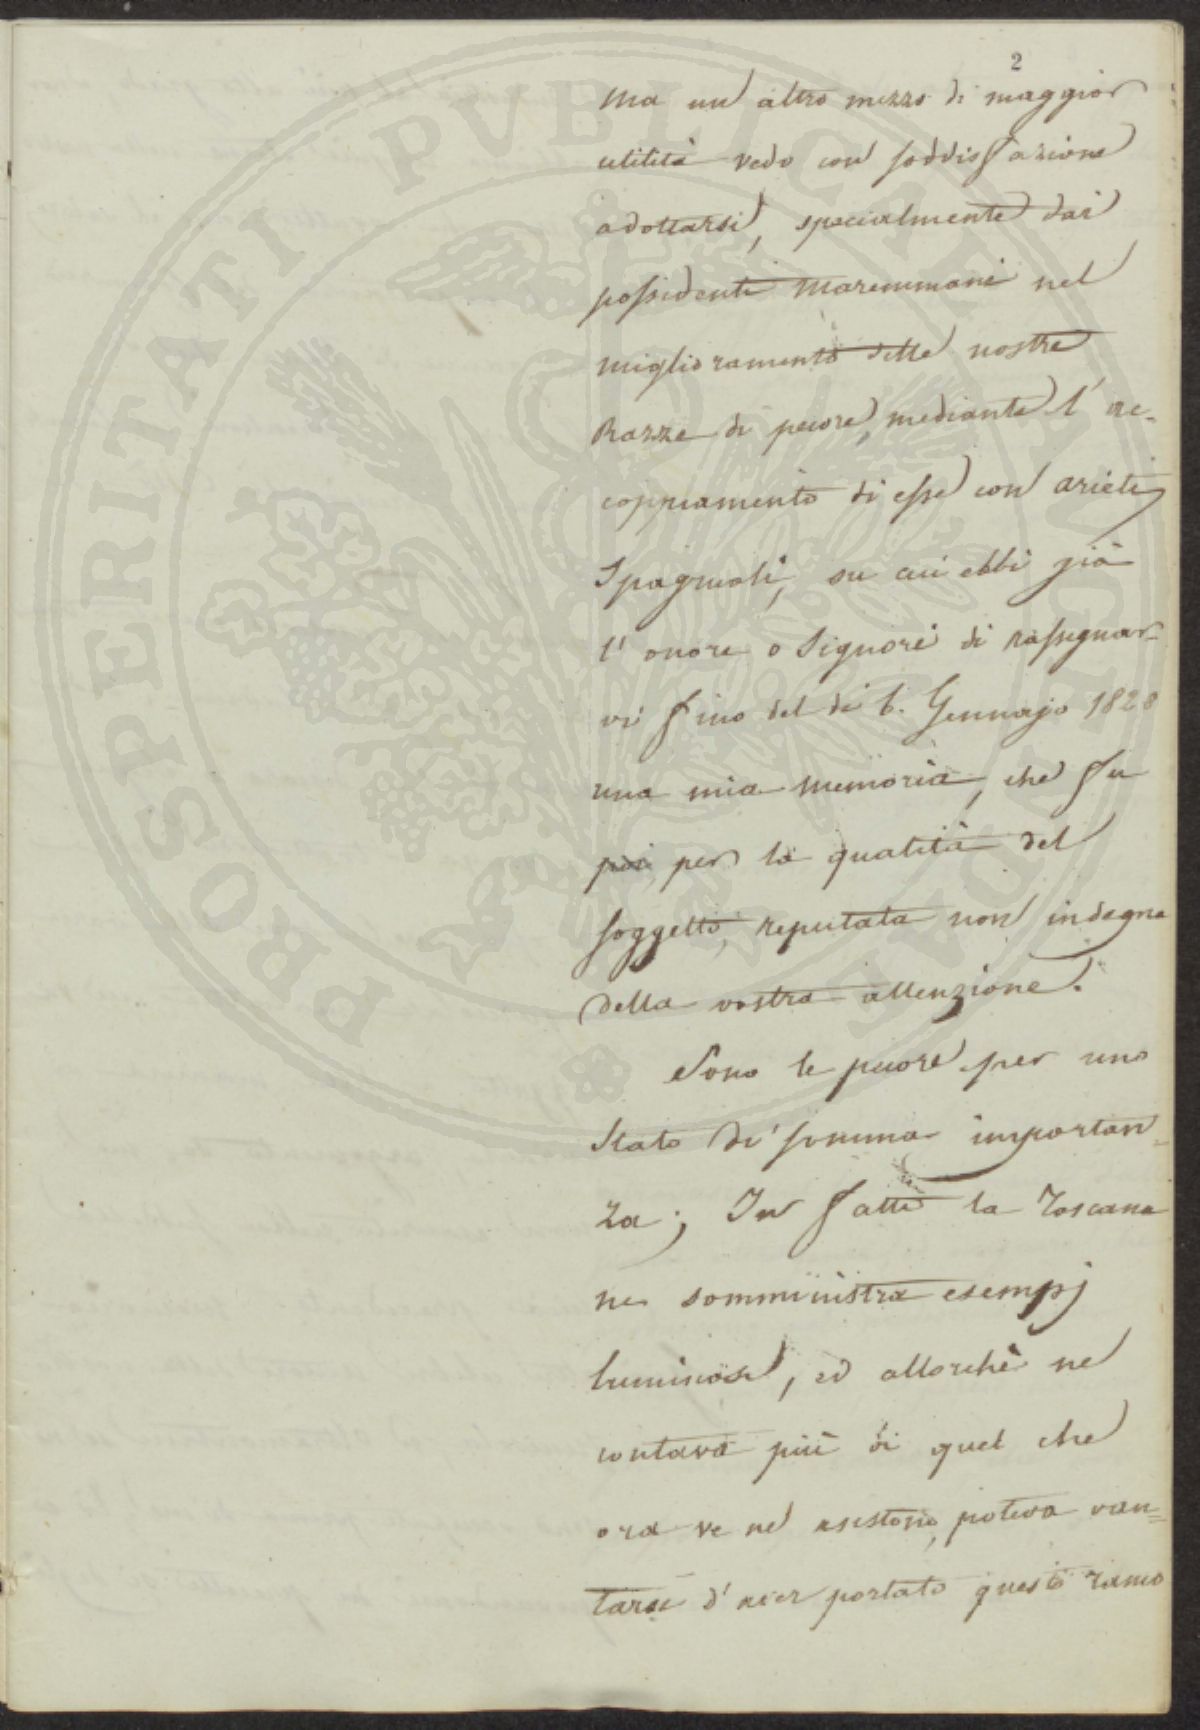 2
Ma un altro mezzo di maggior
utilità vedo con soddisfazione
adottarsi, specialmente dai
possidenti Maremmani nel
miglioramento delle nostre
Razze di pecore, mediante l' ac-
coppiamento di esse con arieti
Spagnuoli, su cui ebbi già
l' onore o Signori di rassegnar-
vi fino del dì 6. Gennajo 1828
una mia memoria, che fu
poi per la qualità del
soggetto, reputata non indegna
della vostra attenzione.
Sono le pecore per uno
Stato di somma importan-
za; In fatti la Toscana
ne somministra esempj
luminosi, ed allorchè ne
contava più di quel che
ora ve ne esistono, poteva van=
tarsi d' aver portato questo ramo
PROSPERITATI PVBLICAE AVGENDAE